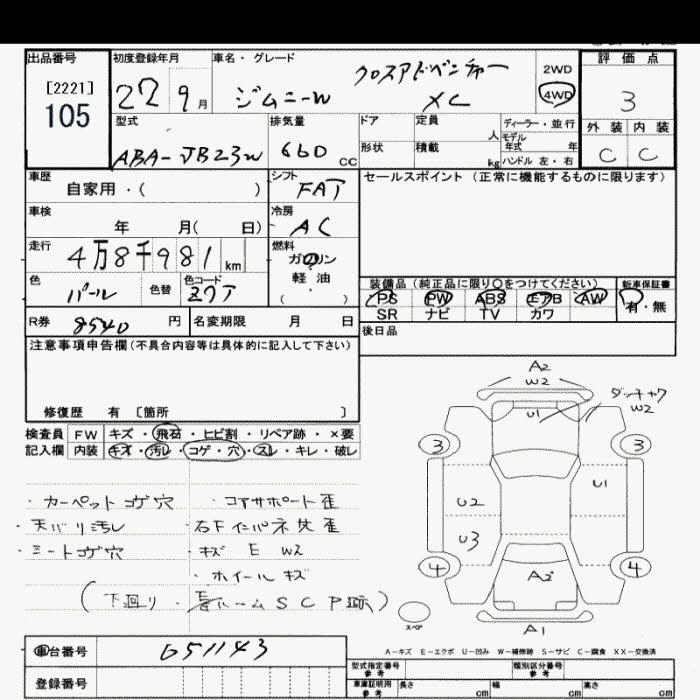 出品番号 初度登録年月 車名・グレード 評価点
[2221] 105
22 9月 ジムニーW クロスアドベンチャー XC 2WD 4WD 3
型式 排気量 ドア 定員 人 ディーラー・並行 外装 内装
モデル年式 年
ABA-JB23W 660 CC 形状 積載 kg ハンドル 左・右 C C
車歴 シフト セールスポイント (正常に機能するものに限ります)
自家用・( ) FAT
車検 冷房
年 月( 日) AC
走行 燃料
4万8千981 km ガソリン
軽油
・( )
色 色替 色コード 装備品 (純正品に限り○をつけてください) 新車保証書
パール Z7T PS PW ABS エアB AW 有・無
SR ナビ TV カワ
R券 8540 円 名変期限 月 日 後日品
注意事項申告欄(不具合内容等は具体的に記入して下さい)
修復歴 有 〔箇所 〕
検査員 FW キズ・飛石・ヒビ割・リペア跡・×要
記入欄 内装 キズ・汚レ・コゲ・穴・スレ・キレ・破レ
・カーペットコゲ穴 ・コアサポート歪
・天バリ汚レ ・右F インパネ 歪
・シートコゲ穴 ・キズ E W2
・ホイールキズ
(下廻り・ ルーム SCP跡)
A2
W2
U1
W2
3 3
U1
U2
U3
4 4
A2
スペア
A1
A-キズ E-エクボ U-凹み W-補修跡 S-サビ C-腐食 XX-交換済
車台番号 651143
型式指定番号 参考 類別区分番号 参考
登録番号
車庫証明用 参考 長さ cm 幅 cm 高さ cm